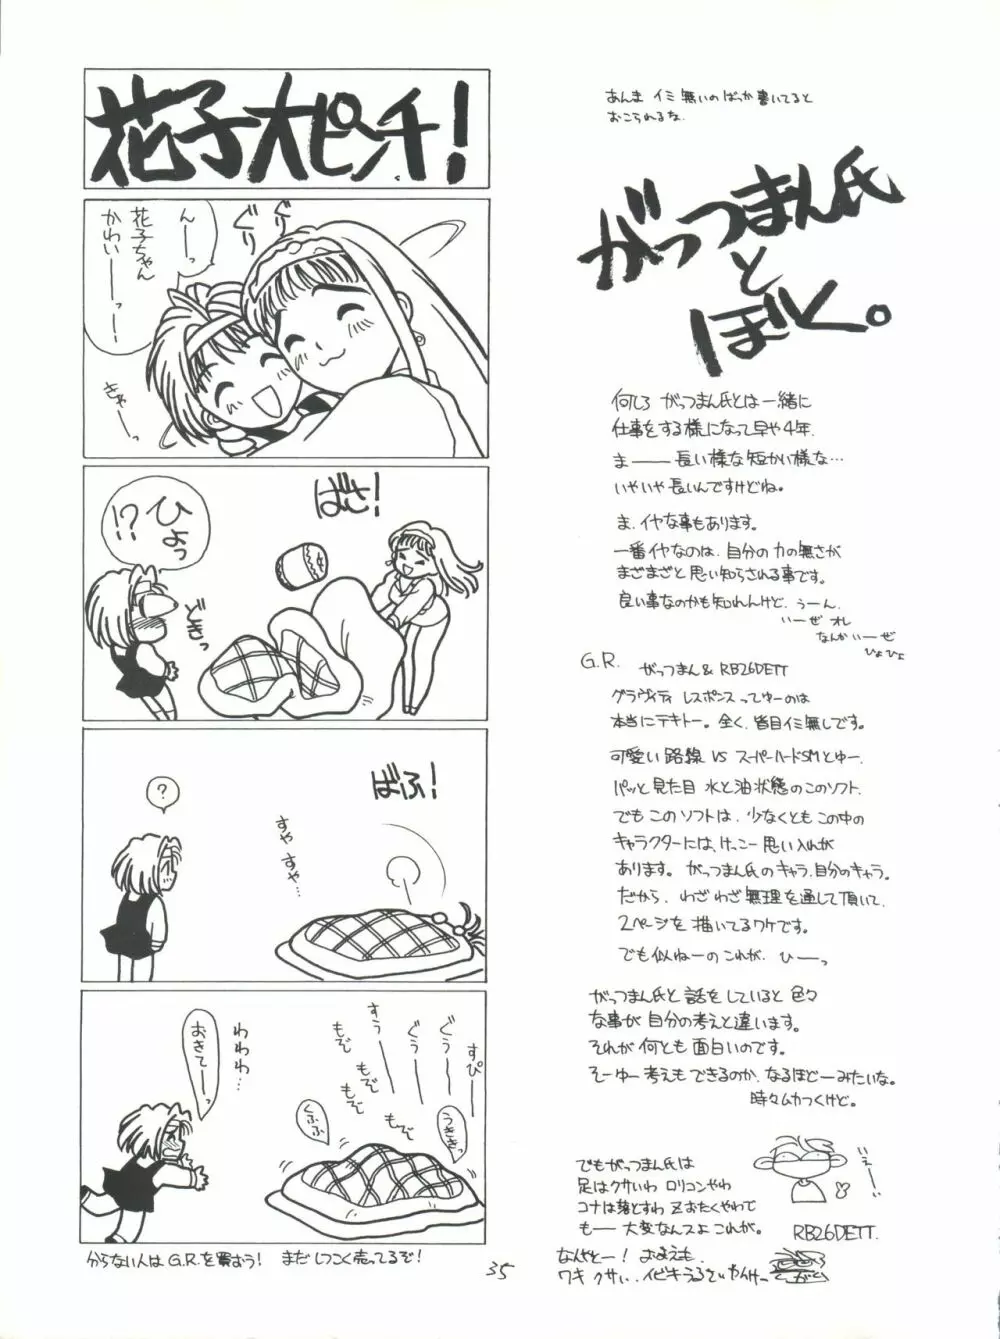 花子大ピンチ!
ぐりぐり
んーっ
花子ちゃん
かわいーっ
きゃーっ
ばさ!
ひょっ
!?
どきっ
ばふ!
?
すや すや…
すぴー
ぐぅー
ぐぅー
すぅー
もぞ
もぞ
もぞ
もぞ
もぞ
うききっ
くふふ
わわわ…
おきてーっ
からない人は G.R.を買おう! まだしつこく売ってるぞ!
35
あんま イミ無いの ばっか書いてると
おこられるな.
がっつまん氏
と
ぼく。
何しろ がっつまん氏とは一緒に
仕事をする様になって早や4年.
ま―― 長い様な短かい様な…
いやいや 長いんですけどね。
ま、イヤな事もあります。
一番イヤなのは、自分の力の無さが
まざまざと思い知らされる事です。
良い事なのかも知れんけど、うーん.
いーぜ オレ
なんかいーぜ
ひょひょ
G.R. がっつまん&RB26DETT
グラヴィティ レスポンスってゆーのは
本当にテキトー。全く、皆目イミ無しです。
可愛い路線 VS スーパーハードSMとゆー.
パッと見た目 水と油状態のこのソフト.
でもこのソフトは、少なくともこの中の
キャラクターには、けっこー思い入れが
あります。 がっつまん氏のキャラ、自分のキャラ。
だから、わざわざ無理を通して頂いて、
2ページを描いてるワケです。
でも似ねーのこれが. ひーっ
がっつまん氏と話をしていると色々
な事が自分の考えと違います。
それが何とも面白いのです。
そーゆー考えもできるのか、なるほどーみたいな。
時々ムカつくけど。
でもがっつまん氏は
足はクサいわ ロリコンやわ
コナは落とすわ Zおたくやわで
もーー 大変なんスよこれが。
いえーーい
RB26DETT.
なんやとー! おまえも、
ワキ クサい、イビキうるさいやんけー
がく